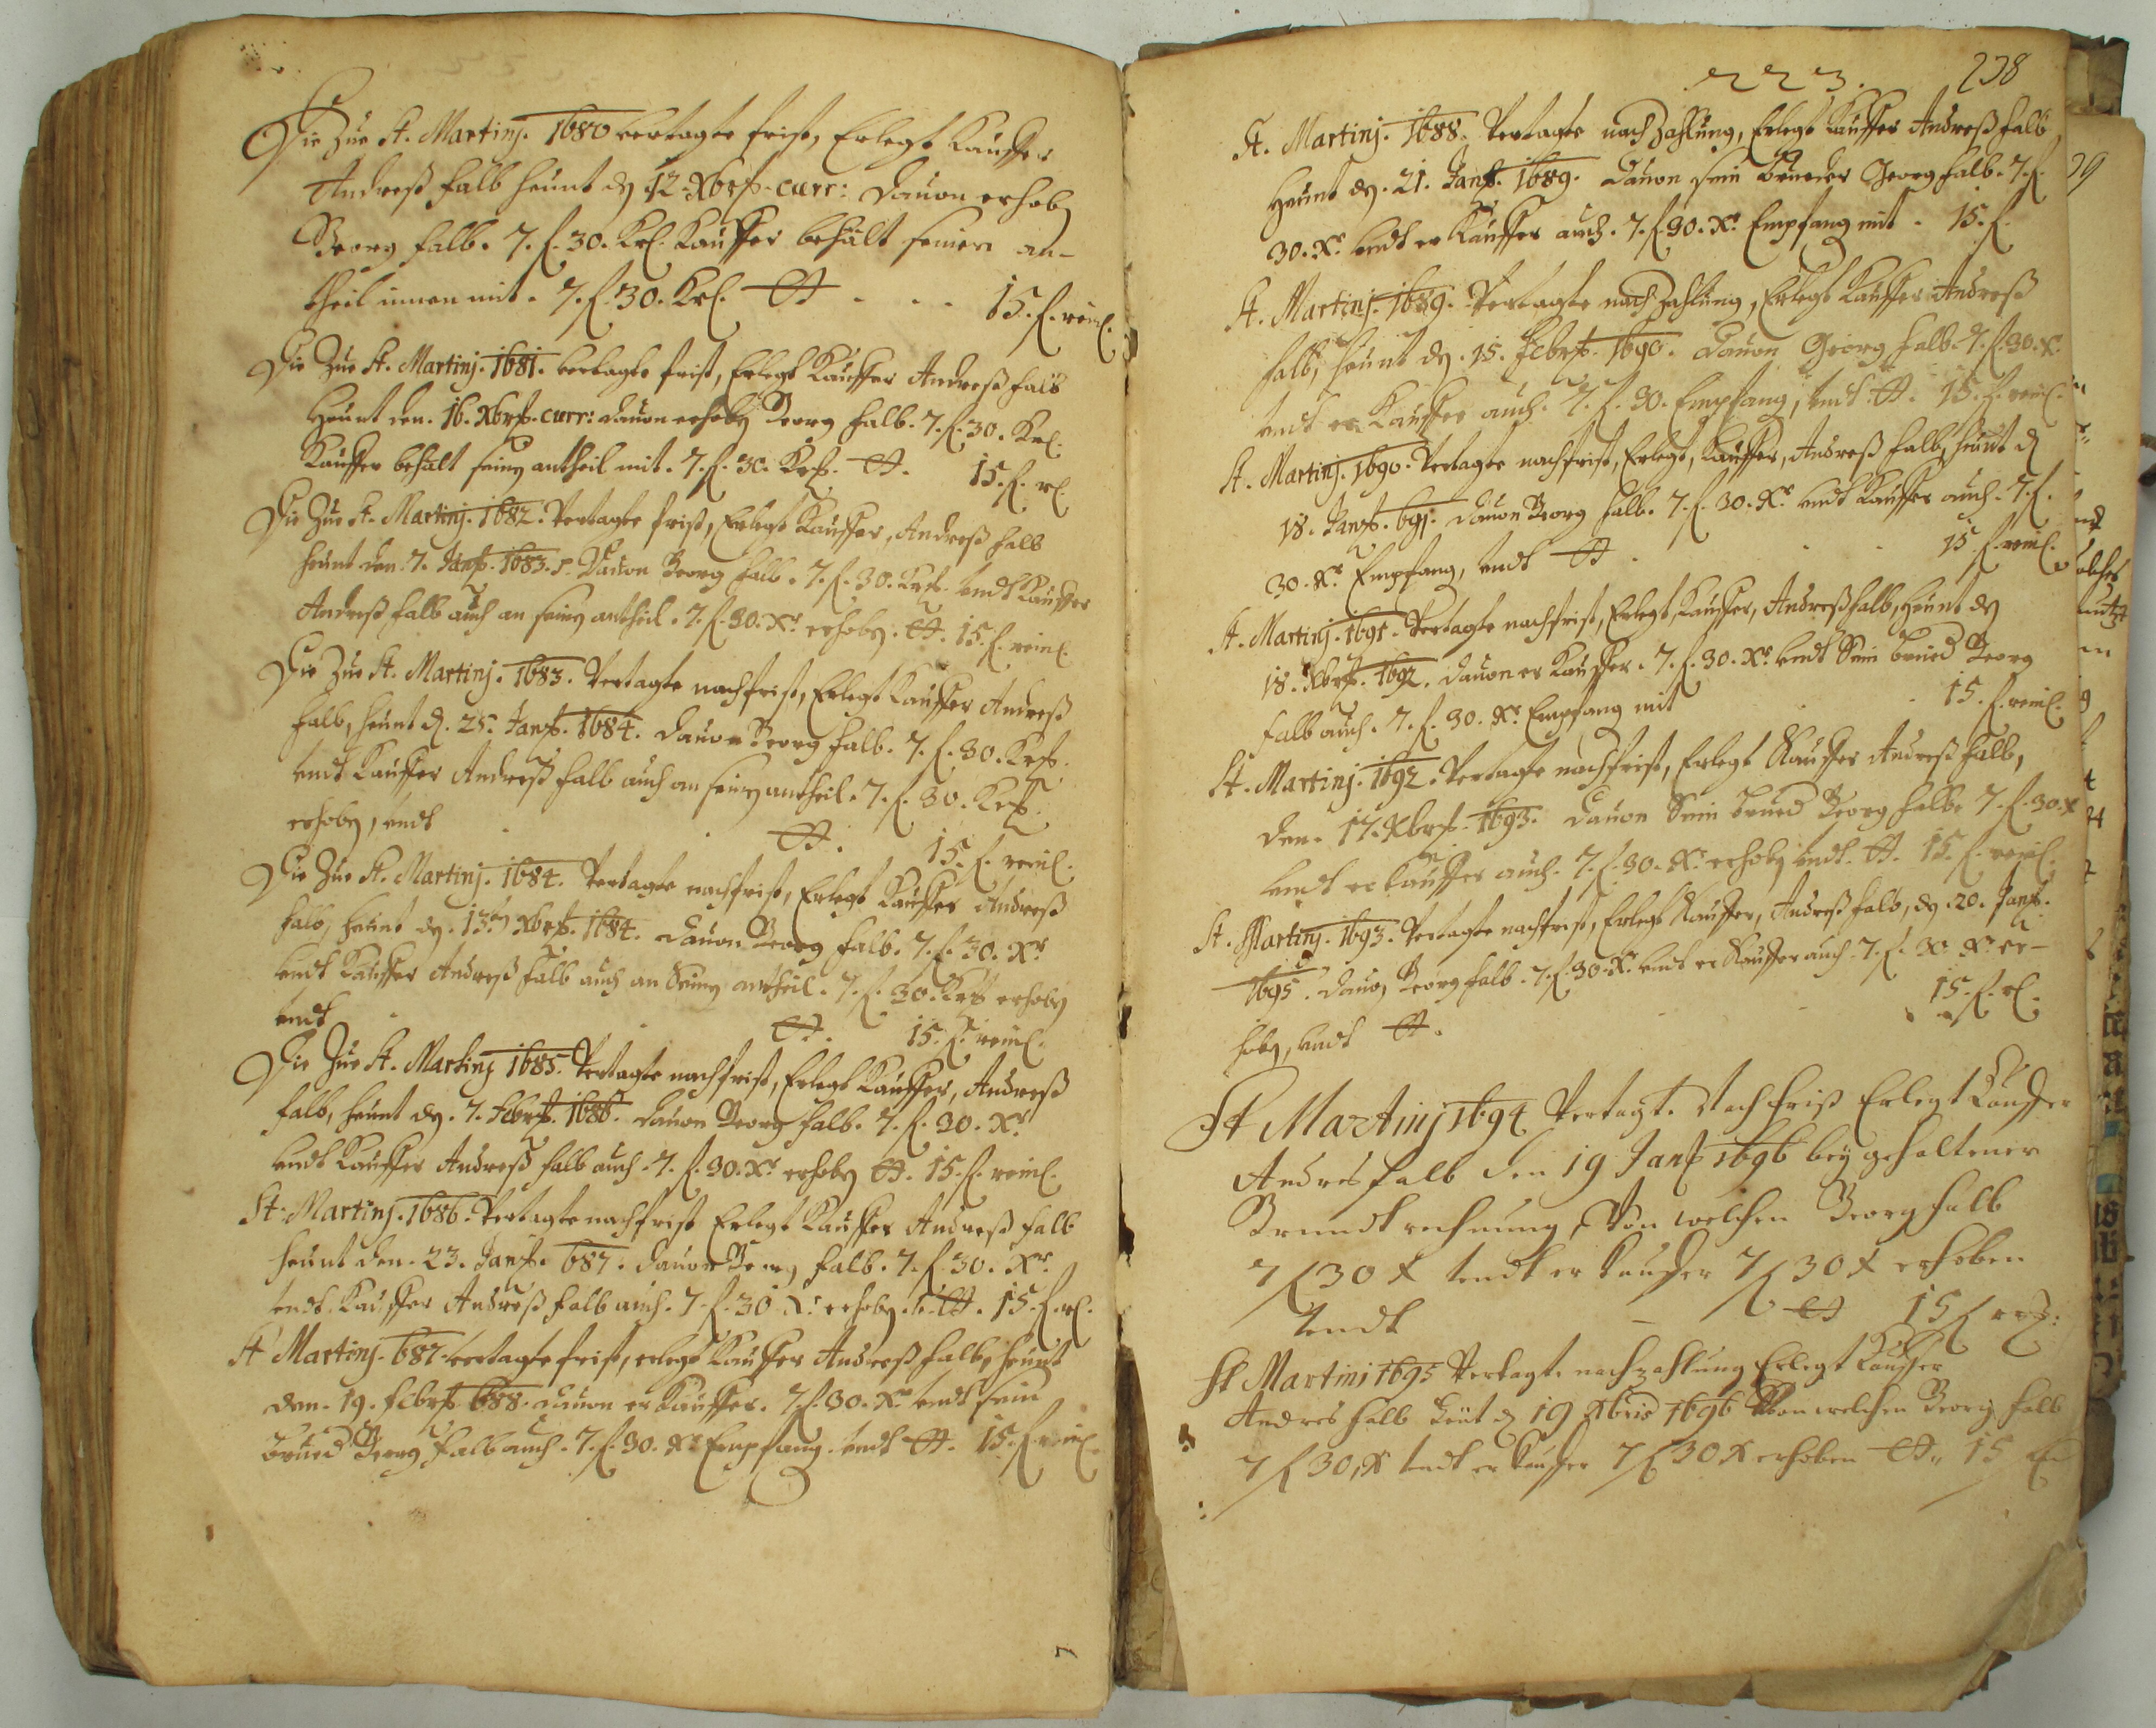 Die Zue St. Martinj. 1680 vertagte frist, Erlegt Kauffer
Andreß Halb heunt dz 12. Xbrß. curr: dauon erhobz
Georg Halb. 7. f. 30. Krl. Kauffer behält seinen an-
theil innen mit. 7. f. 30. Krl. 15. f. reinl.
Die Zue St. Martinj. 1681. vertagte frist, Erlegt Kauffer Andreß Halb
Heunt den. 16. Xbrß. curr: dauon erhobz Georg Halb. 7. f. 30. Krl.
Kauffer behält seinz antheil mit. 7. f. 30. Krß. 15. f. rl.
Die Zue St. Martinj. 1682. Vertagte frist, Erlegt Kauffer, Andreß Halb
heunt den 7. Janß. 1683. Dauon Georg Halb. 7. f. 30. Krß. undt Kauffer
Andreß Halb auch an seinz antheil. 7. f. 30. Xr. erhobz. 15. f. reinl.
Die Zue St. Martinj. 1683. Vertagte nachfrist, Erlegt Kauffer Andreß
Halb, heunt d. 25. Janß. 1684. dauon Georg Halb. 7. f. 30. Krß.
undt Kauffer Andreß Halb auch an seinz antheil. 7. f. 30. Krß.
erhobz, undt 15. f. reinl.
Die Zue St. Martinj. 1684. Vertagte nachfrist, Erlegt Kauffer Andreß
Halb, heunt dz. 13 Xbrß. 1684. dauon Georg Halb. 7. f. 30. Xr
undt Kauffer Andreß Halb auch an Seinz antheil. 7. f. 30. Krß erhobz
undt 15. f. reinl.
Die Zue St. Martinj 1685. Vertagte nachfrist, Erlegt Kauffer, Andreß
Halb, heunt dz. 7. Febrß. 1686. dauon Georg Halb. 7. f. 30. Xr
undt Kauffer Andreß Halb auch. 7. f. 30. Xr erhobz 15. f. reinl.
St. Martinj. 1686. Vertagte nachfrist Erlegt Kauffer Andreß Halb
heunt den. 23. Janß. 687. dauon Georg Halb. 7. f. 30. Xr.
undt Kauffer Andreß Halb auch. 7. f. 30 Xr erhobz. 15. f. rl.
St Martinj. 687. vertagte frist, erlegt Kauffer Andreß Halb, heunt
den. 19. Febrß 688. dauon er Kauffer. 7. f. 30. Xr undt sein
brued Georg Halb auch. 7. f. 30. Xr Empfang. undt 15. f. reinl.
223. 238
St. Martinj. 1688. Vertagte nach Zahlung, Erlegt Kauffer Andreß Halb
Heunt dz. 21. Janß. 1689. Dauon sein brueder Georg Halb. 7. f.
30. Xr undt er Kauffer auch. 7. f. 30. Xr Empfang mit. 15. f.
St. Martinj. 1689. Vertagte nach Zahlung, Erlegt Kauffer Andreß
Halb, heunt dz. 15. Febrß. 1690. Dauon Georg Halb 7. f. 30. X.
undt er Kauffer auch. 7. f. 30. Empfang, undt. 15. f. reinl.
St. Martinj. 1690. Vertagte nachfrist, Erlegt, Kauffer, Andreß Halb, heunt d
18. Janß. 691. dauon Georg Halb. 7. f. 30. Xr undt Kauffer auch. 7. f.
30. Xr Empfang, undt 15 f. reinl.
St. Martinj. 1691. Vertagte nachfrist, Erlegt Kauffer, Andreß Halb, heunt dz
18. Xbrß. 1692. dauon er Kauffer. 7. f. 30. Xr undt Sein brued Georg
Halb auch. 7. f. 30. Xr Empfang mit 15. f. reinl.
St. Martinj. 1692. Vertagte nachfrist, Erlegt Kauffer Andreß Halb,
den. 17. Xbrß. 1693. dauon Sein brued Georg Halb 7. f. 30. X
undt er Kauffer auch. 7. f. 30. Xr erhobz undt. 15. f. reinl.
St. Martinj. 1693. Vertagte nachfrist, Erlegt Kauffer, Andreß Halb, dz. 20. Janß.
1695. dauoz Georg Halb. 7. f. 30. Xr undt er Kauffer auch. 7. f. 30 Xr er-
hobz, undt 15. f. rl.
St Martinj 1694 Vertagt. Nachfrist Erlegt Kauffer
Andres Halb den 19 Janß 1696 bey gehaltener
Grundt rechnung, Von welchen Georg Halb
7 f 30 X undt er Kauffer 7 f 30 X erhoben
undt 15 f
St Martini 1695 Vertagt. nachzahlung Erlegt Kauffer
Andres Halb heut d 19 Xbris 1696 Von welchen Georg Halb
7 f 30, X undt er Kauffer 7 f 30 X erhoben 15